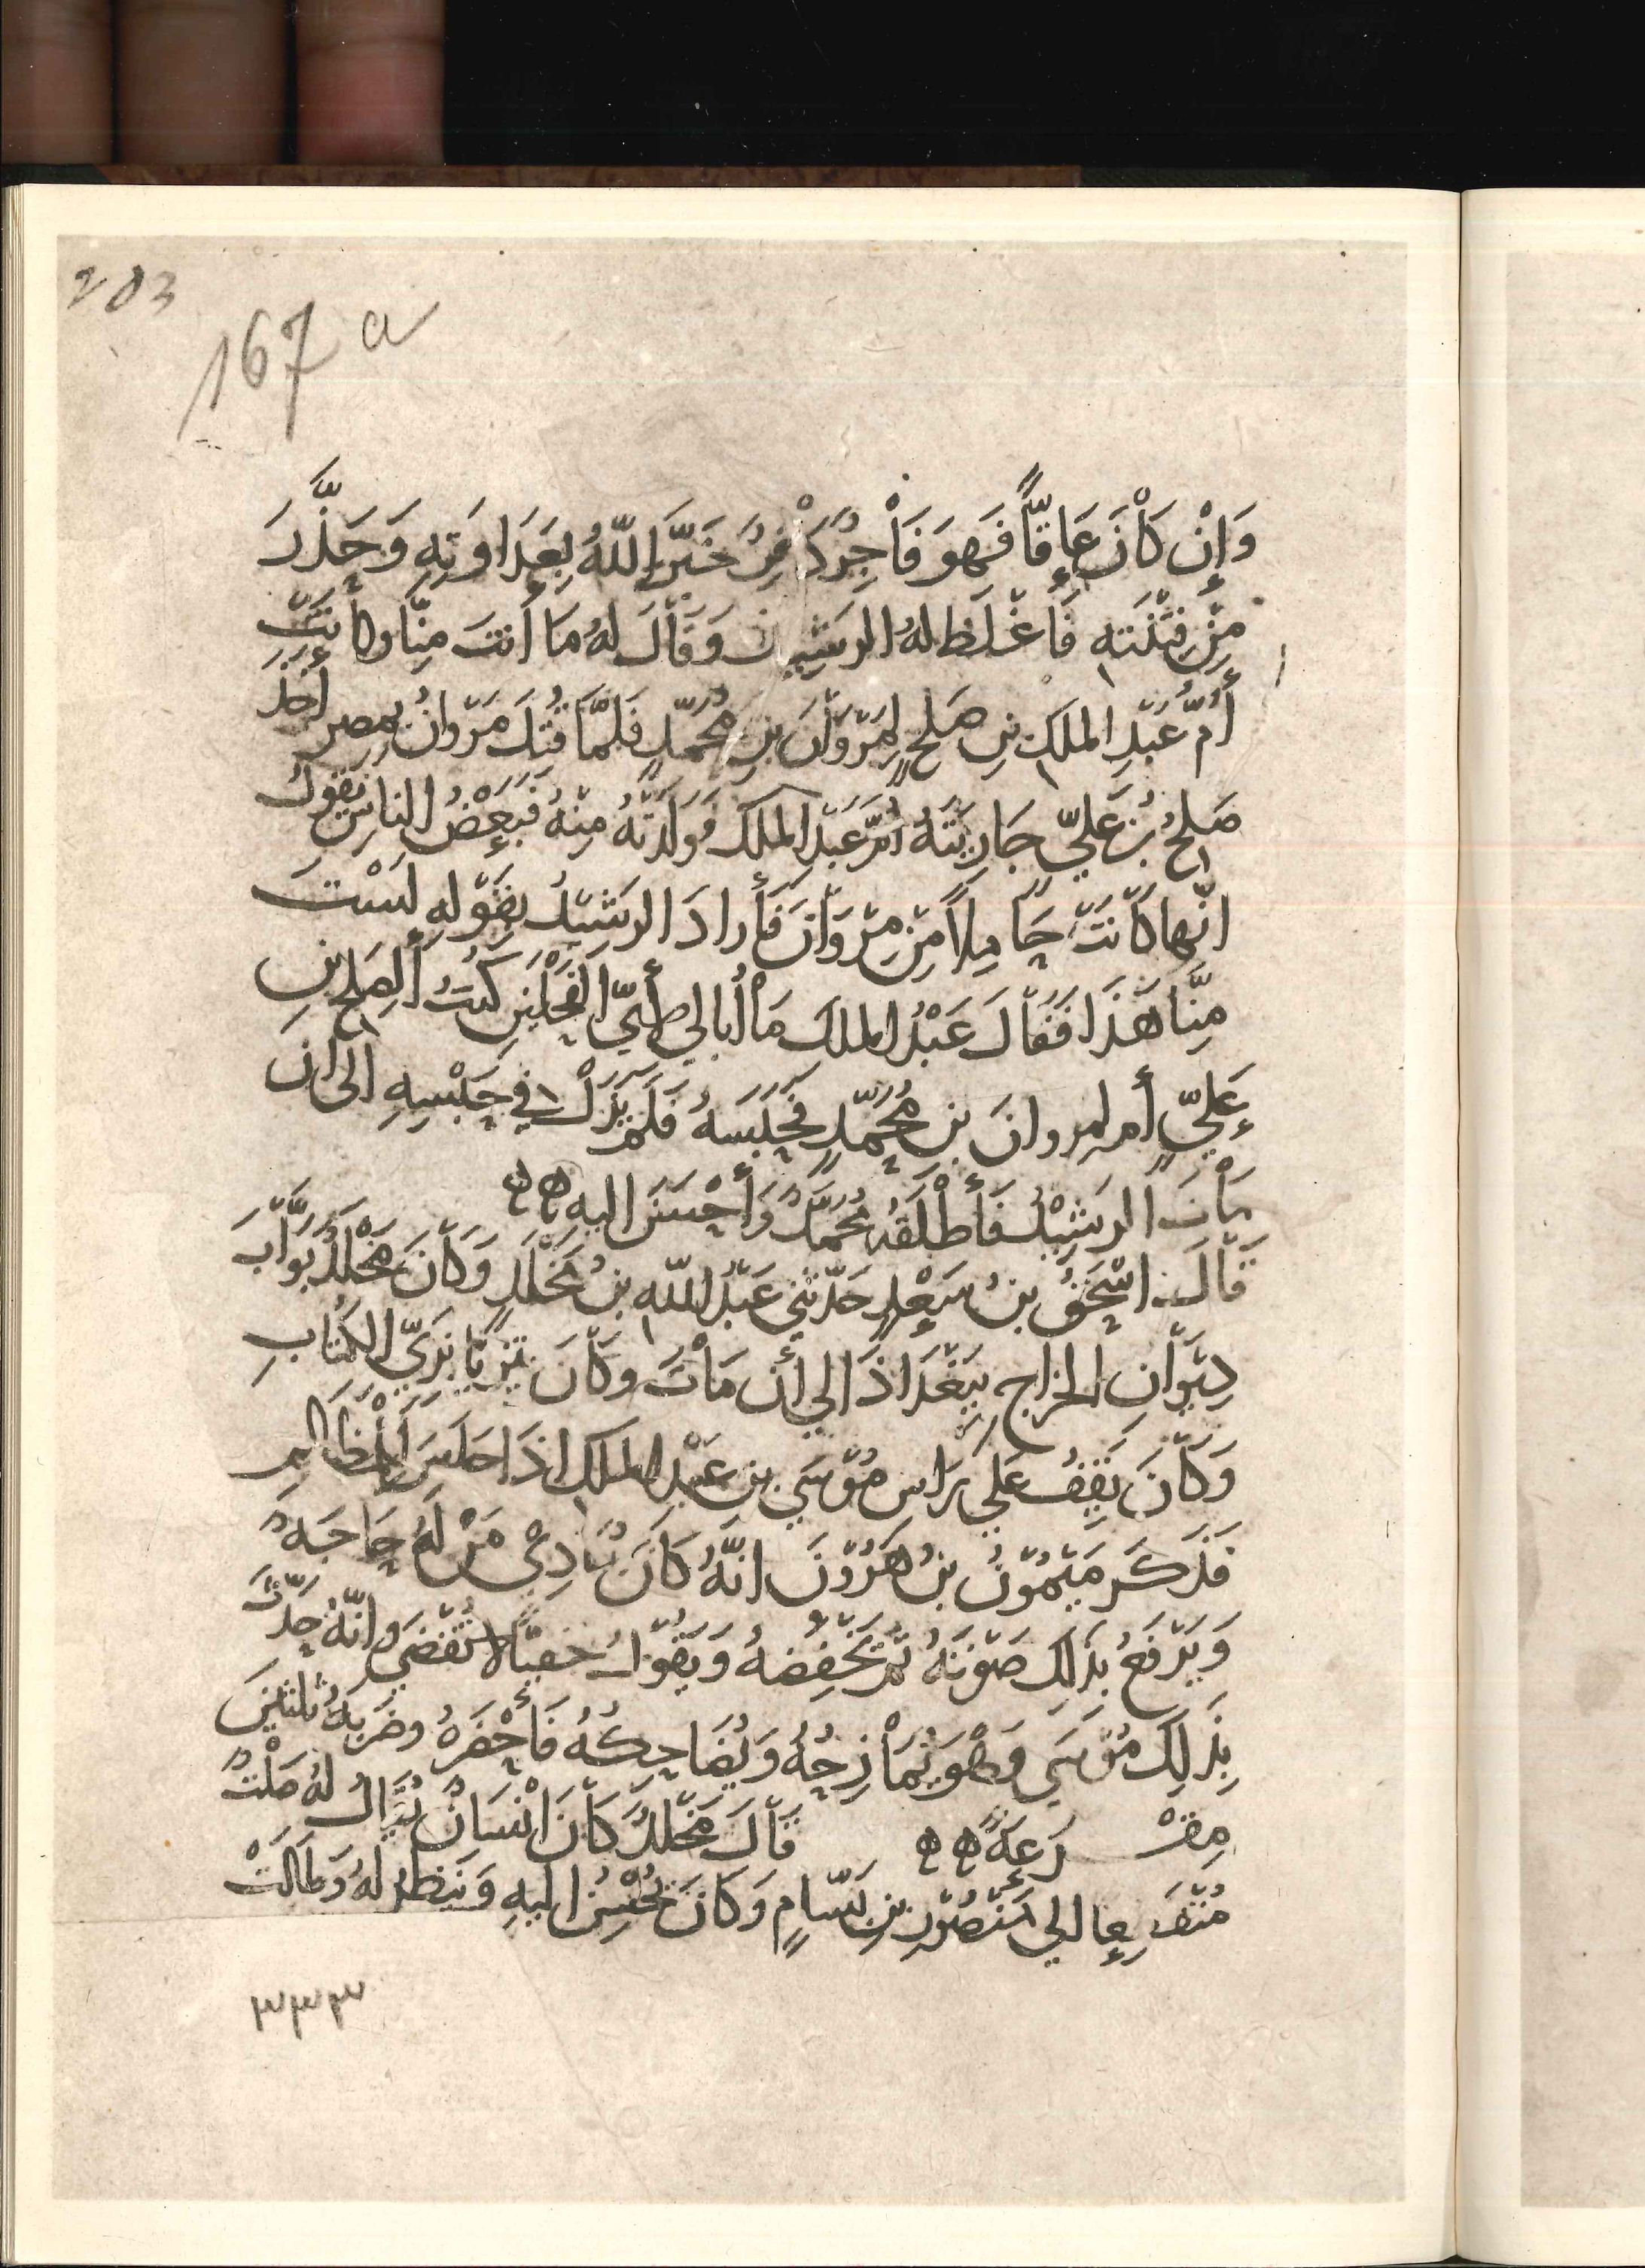 203
167 a
وَإِنْ كَانَ عَاقًّا فَهوَ فَاجِرٌ كَافِرٌ خَبَّرَ اللهُ بِعَدَاوَتِهِ وَحَذَّرَ
مِنْ فِتْنَتِهِ فَأَغْلَظَ لهُ الرَشِيدُ وَقَالَ لهُ مَا أَنتَ مِنَّا وكانَتْ
أُمُّ عَبْدِ الملَكِ بنِ صَلحٍ لِمَرْوَانَ بنِ مُحَمَّدٍ فَلمَّا قُتِلَ مَرْوانُ بِمِصر أَخَذَ
صَلحُ بْنُ عَلِيٍّ جَارِيَتَهُ أُمَّ عَبْدِ الملَكِ فَوَلَدَتْهُ مِنهُ فَبَعْضُ الناسِ يَقولُ
انّها كَانَتْ حَامِلاً مِنْ مَرْوَانَ فَأَرادَ الرَشِيْدُ بِقَوْلِهِ لَسْتَ
مِنَّا هَذَا فَقَالَ عَبْدُ الملك مَا أُبَالي لِأَيِّ الفَحْلَيْنِ كُنتُ أَلِصَلحِ بنِ
عَلِيٍّ أَم لمِروانَ بنِ مُحَمَّدٍ فَحَبَسَهُ فَلَم يَزَلْ في حَبْسِهِ الى ان
مَاتَ الرَشِيْدُ فَأَطْلَقَهُ مُحَمَّدٌ وَأَحْسَنَ اليهِ هـ هـ
قَالَ اسْحَقُ بنُ سَعْدٍ حَدّثَنِي عَبْدُ اللهِ بنُ مَخْلَدٍ وَكَانَ مَخْلَدٌ بَوَّابَ
دِيْوَانِ الخَراجِ بِبَغْدَاذَ الي أَن مَاتَ وكَانَ يَتَزَيَّا بِزِيِّ الكُتَّابِ
وَكَانَ يَقِفُ عَلي رَاسِ مُوْسَي بنِ عَبْدِ الملَكِ اذَا جَلَسَ لِلْمَظَالِمِ
فَذَكَرَ مَيْمُوْنُ بنُ هَرُوْنَ انَّهُ كَانَ يُنَادِيْ مَنْ لَهُ حَاجَةٌ
وَيَرْفَعُ بِذلِكَ صَوْتَهُ ثُمَّ يَخْفِضُهُ وَيَقُوْلُ لا تُقْضَي وانّهُ حَدَّثَ
بِذَلِكَ مُوْسَي وَهْوَ يُمَازِحُهُ وَيُضَاحِكُهُ فَأَحْضَرَهُ وضَرَبَهُ ثلثينَ
مِقْرَعَةً هـ هـ قَالَ مَخْلَدٌ كَانَ انْسَانٌ يُقَالُ لهُ صَلْتٌ
مُنْقَطِعا الي مَنْصُوْرِ بنِ بَسَّامٍ وَكَانَ يُحْسِنُ اليهِ وَيَنظُرُ لهُ وَطَالَتْ
٣٣٣